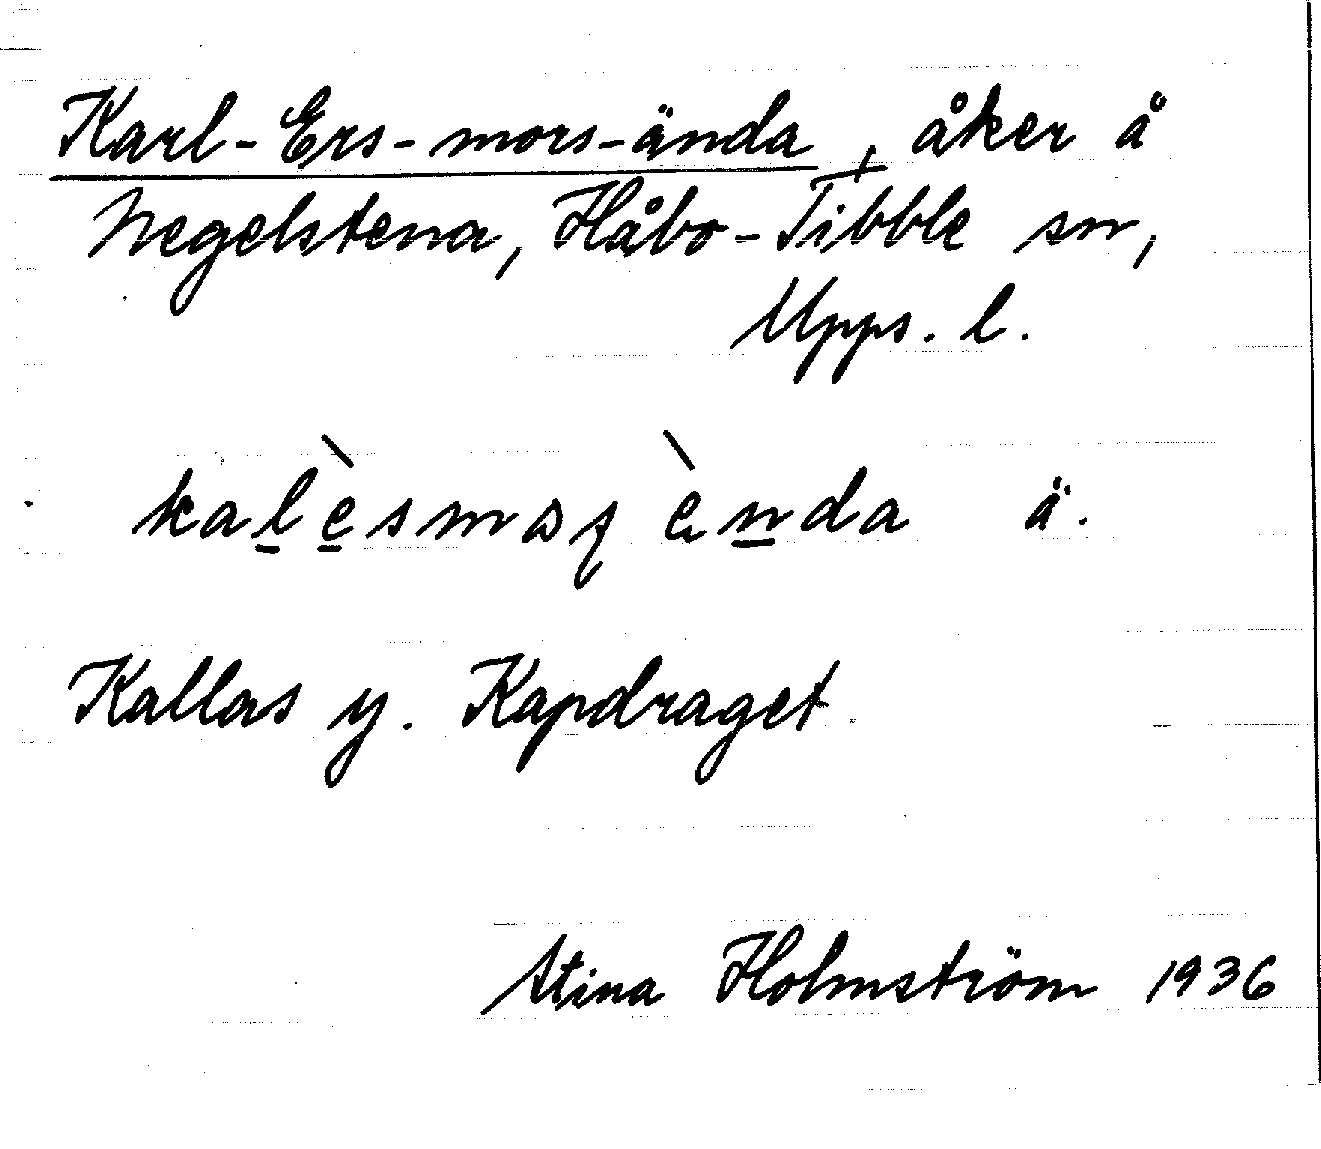 Karl-Ers-mors-ända, åker å
Negelstena, Håbo-Tibble sn,
Upps. l.
ä.
Kallas y. Kapdraget
Stina Holmström 1936